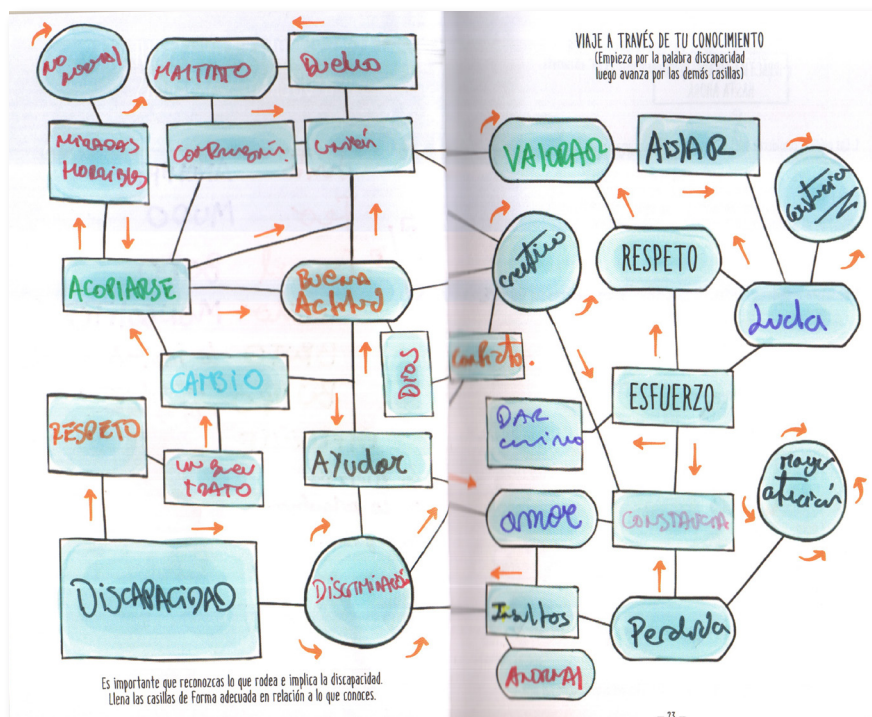 VIAJE A TRAVÉS DE TU CONOCIMIENTO
(Empieza por la palabra discapacidad
luego avanza por las demás casillas)
NO
NORMAL
MALTRATO
Duelo
MIRADAS
HORRIBLES
COMPRENSIÓN
unión
VALORAR
AISLAR
ACOPLARSE
BUENA
Actitud
creativo
RESPETO
Lucha
CAMBIO
DIOS
Conflicto.
ESFUERZO
RESPETO
un buen
TRATO
AYudar
DAR
cariño
Mayor
atención
amor
CONSTANCIA
DiSCAPACiDAD
DISCRIMINACIÓN
Insultos
Perdida
ANORMAL
Es importante que reconozcas lo que rodea e implica la discapacidad.
Llena las casillas de Forma adecuada en relación a lo que conoces.
23